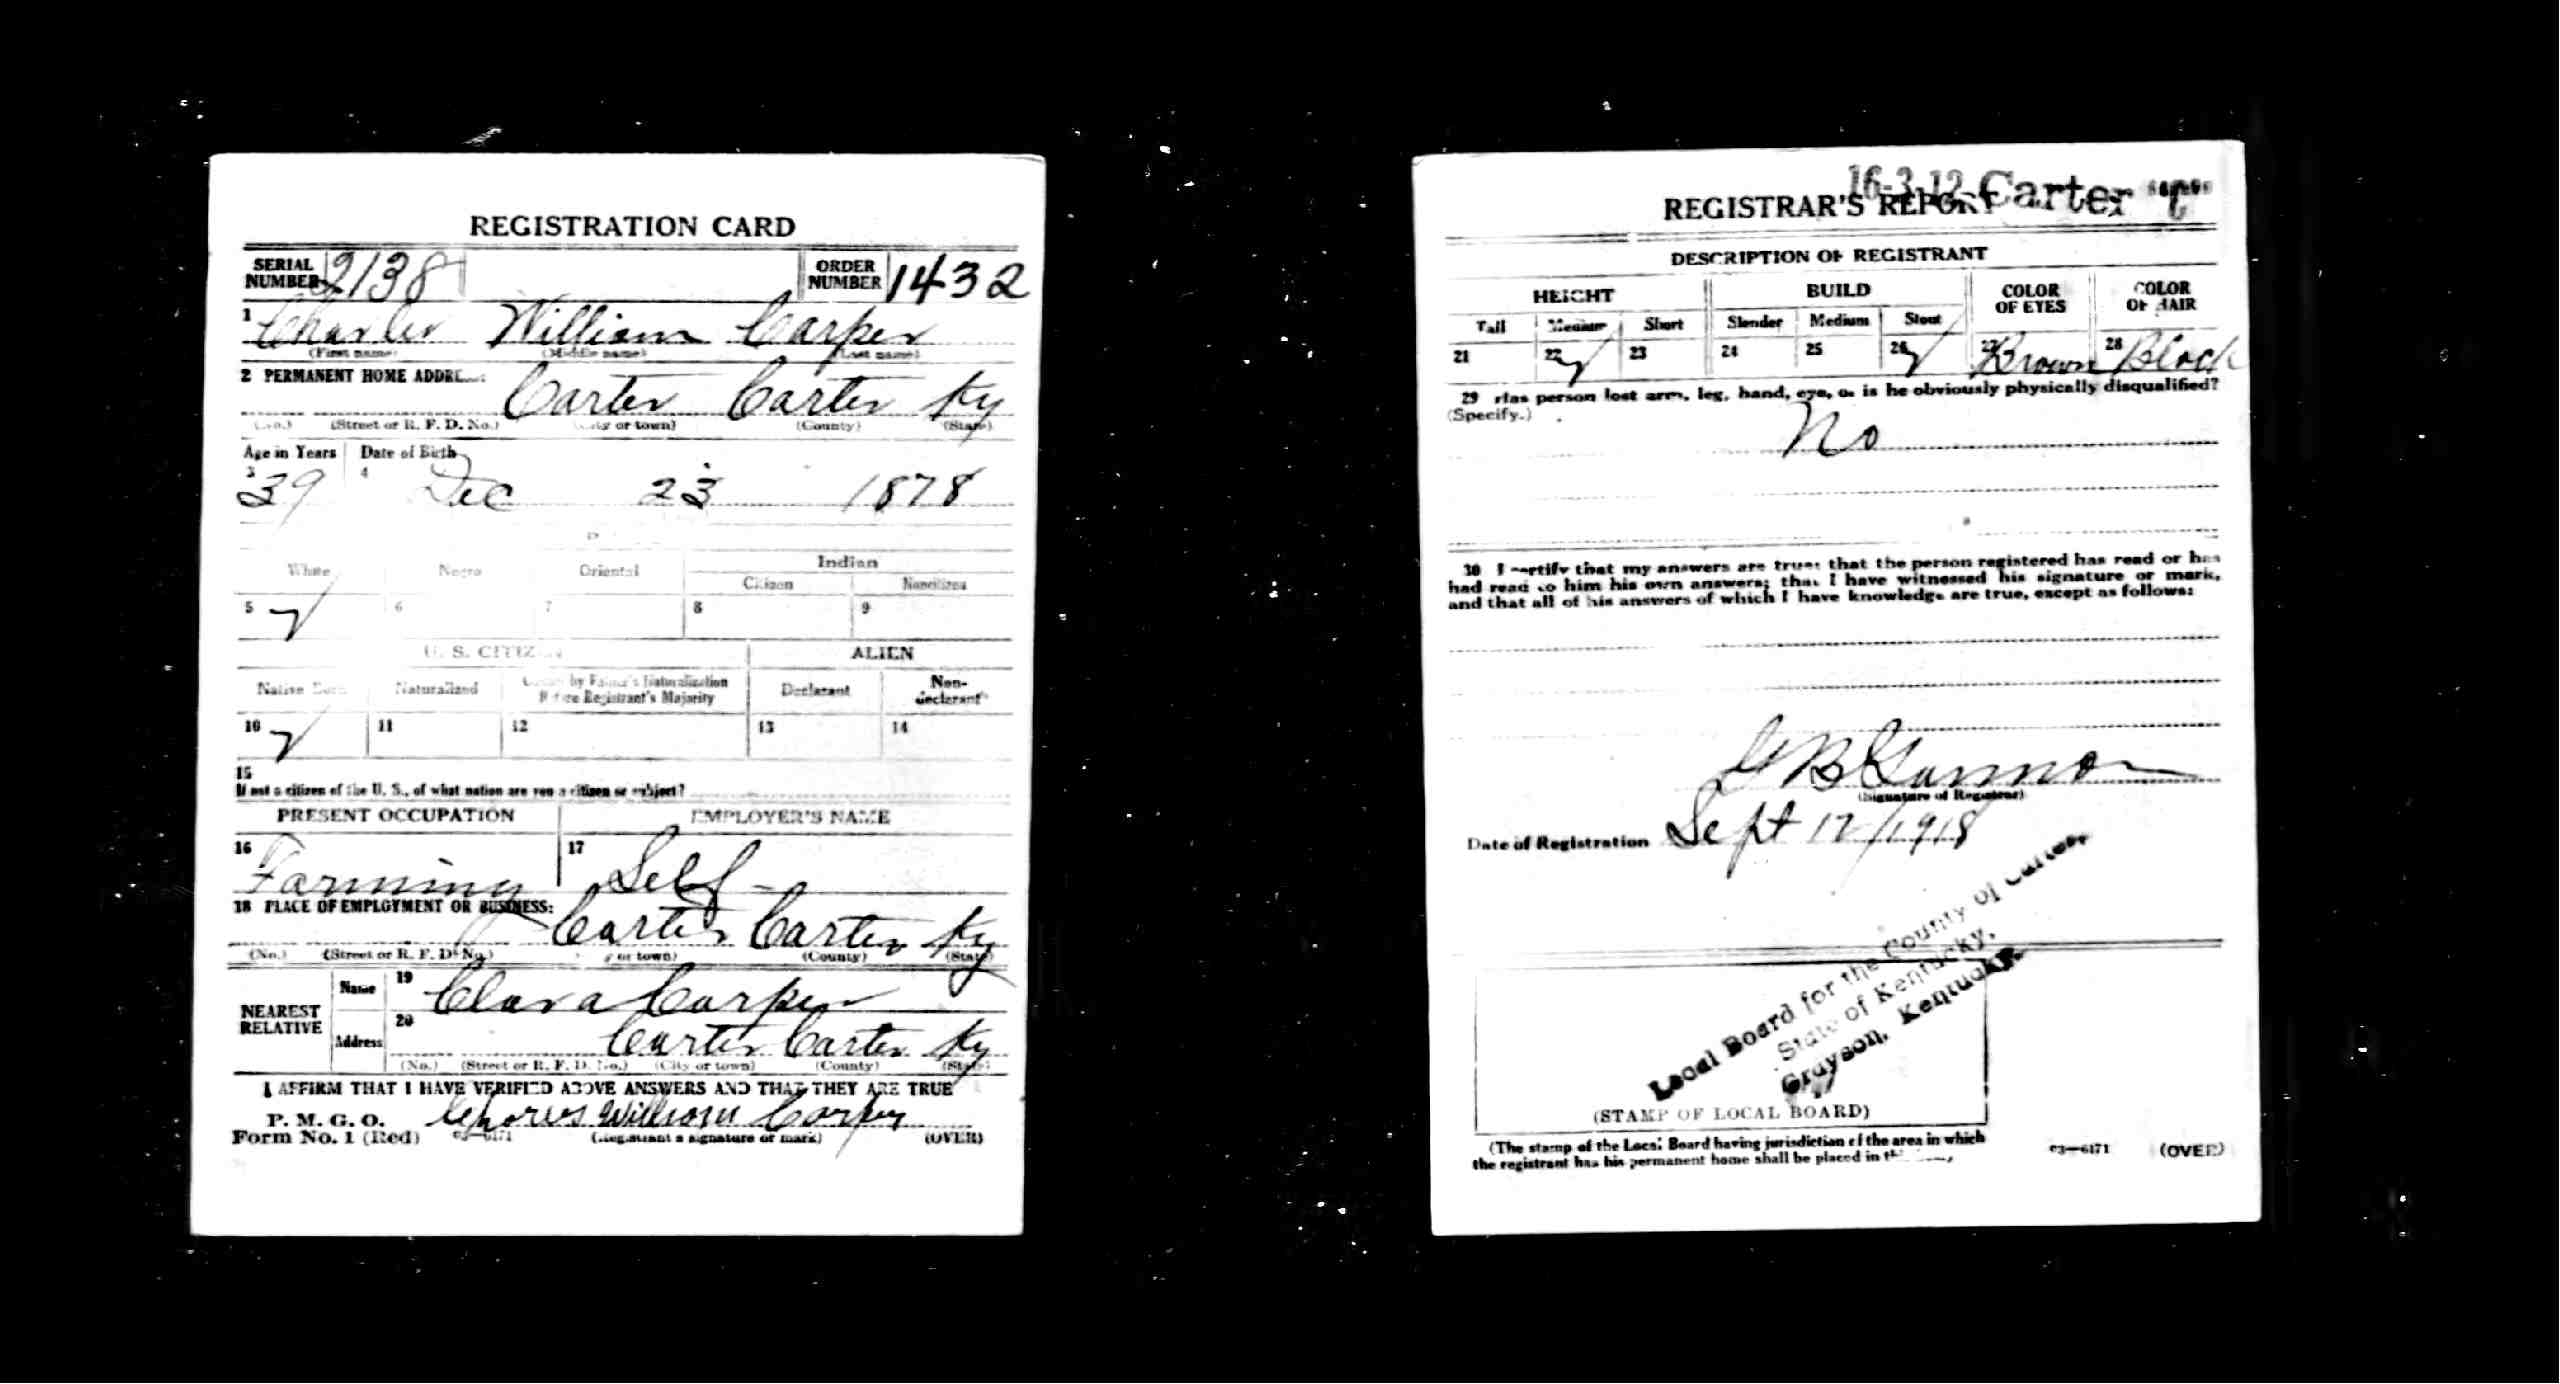 REGISTRATION CARD
SERIAL NUMBER 2138 ORDER NUMBER 1432
1 Charles William Carper
(First name) (Middle name) (Last name)
2 PERMANENT HOME ADDRESS:
Carter Carter Ky
(No.) (Street or R. F. D. No.) (City or town) (County) (State)
Age in Years Date of Birth
3 39 4 Dec 23 1878
White Negro Oriental Indian
Citizen Noncitizen
5 ✓ 6 7 8 9
U. S. CITIZEN ALIEN
Native Born Naturalized Citizen by Father's Naturalization Before Registrant's Majority Declarant Non-declarant
10 ✓ 11 12 13 14
15
If not a citizen of the U. S., of what nation are you a citizen or subject?
PRESENT OCCUPATION EMPLOYER'S NAME
16 Farming 17 Self
18 PLACE OF EMPLOYMENT OR BUSINESS:
Carter Carter Ky
(No.) (Street or R. F. D. No.) (City or town) (County) (State)
NEAREST RELATIVE Name 19 Clara Carper
Address 20 Carter Carter Ky
(No.) (Street or R. F. D. No.) (City or town) (County) (State)
I AFFIRM THAT I HAVE VERIFIED ABOVE ANSWERS AND THAT THEY ARE TRUE
P. M. G. O.
Form No. 1 (Red) 03—6171 Charles William Carper
(Registrant's signature or mark) (OVER)
16-3-12 Carter C
REGISTRAR'S REPORT
DESCRIPTION OF REGISTRANT
HEIGHT BUILD COLOR OF EYES COLOR OF HAIR
Tall Medium Short Slender Medium Stout
21 22 ✓ 23 24 25 26 ✓ 27 Brown 28 Black
29 Has person lost arm, leg, hand, eye, or is he obviously physically disqualified?
(Specify.)
No
30 I certify that my answers are true; that the person registered has read or has
had read to him his own answers; that I have witnessed his signature or mark,
and that all of his answers of which I have knowledge are true, except as follows:
(Signature of Registrar)
Date of Registration Sept 12/1918
Local Board for the County of Carter,
State of Kentucky,
Grayson, Kentucky.
(STAMP OF LOCAL BOARD)
(The stamp of the Local Board having jurisdiction of the area in which
the registrant has his permanent home shall be placed in
03—6171 (OVER)